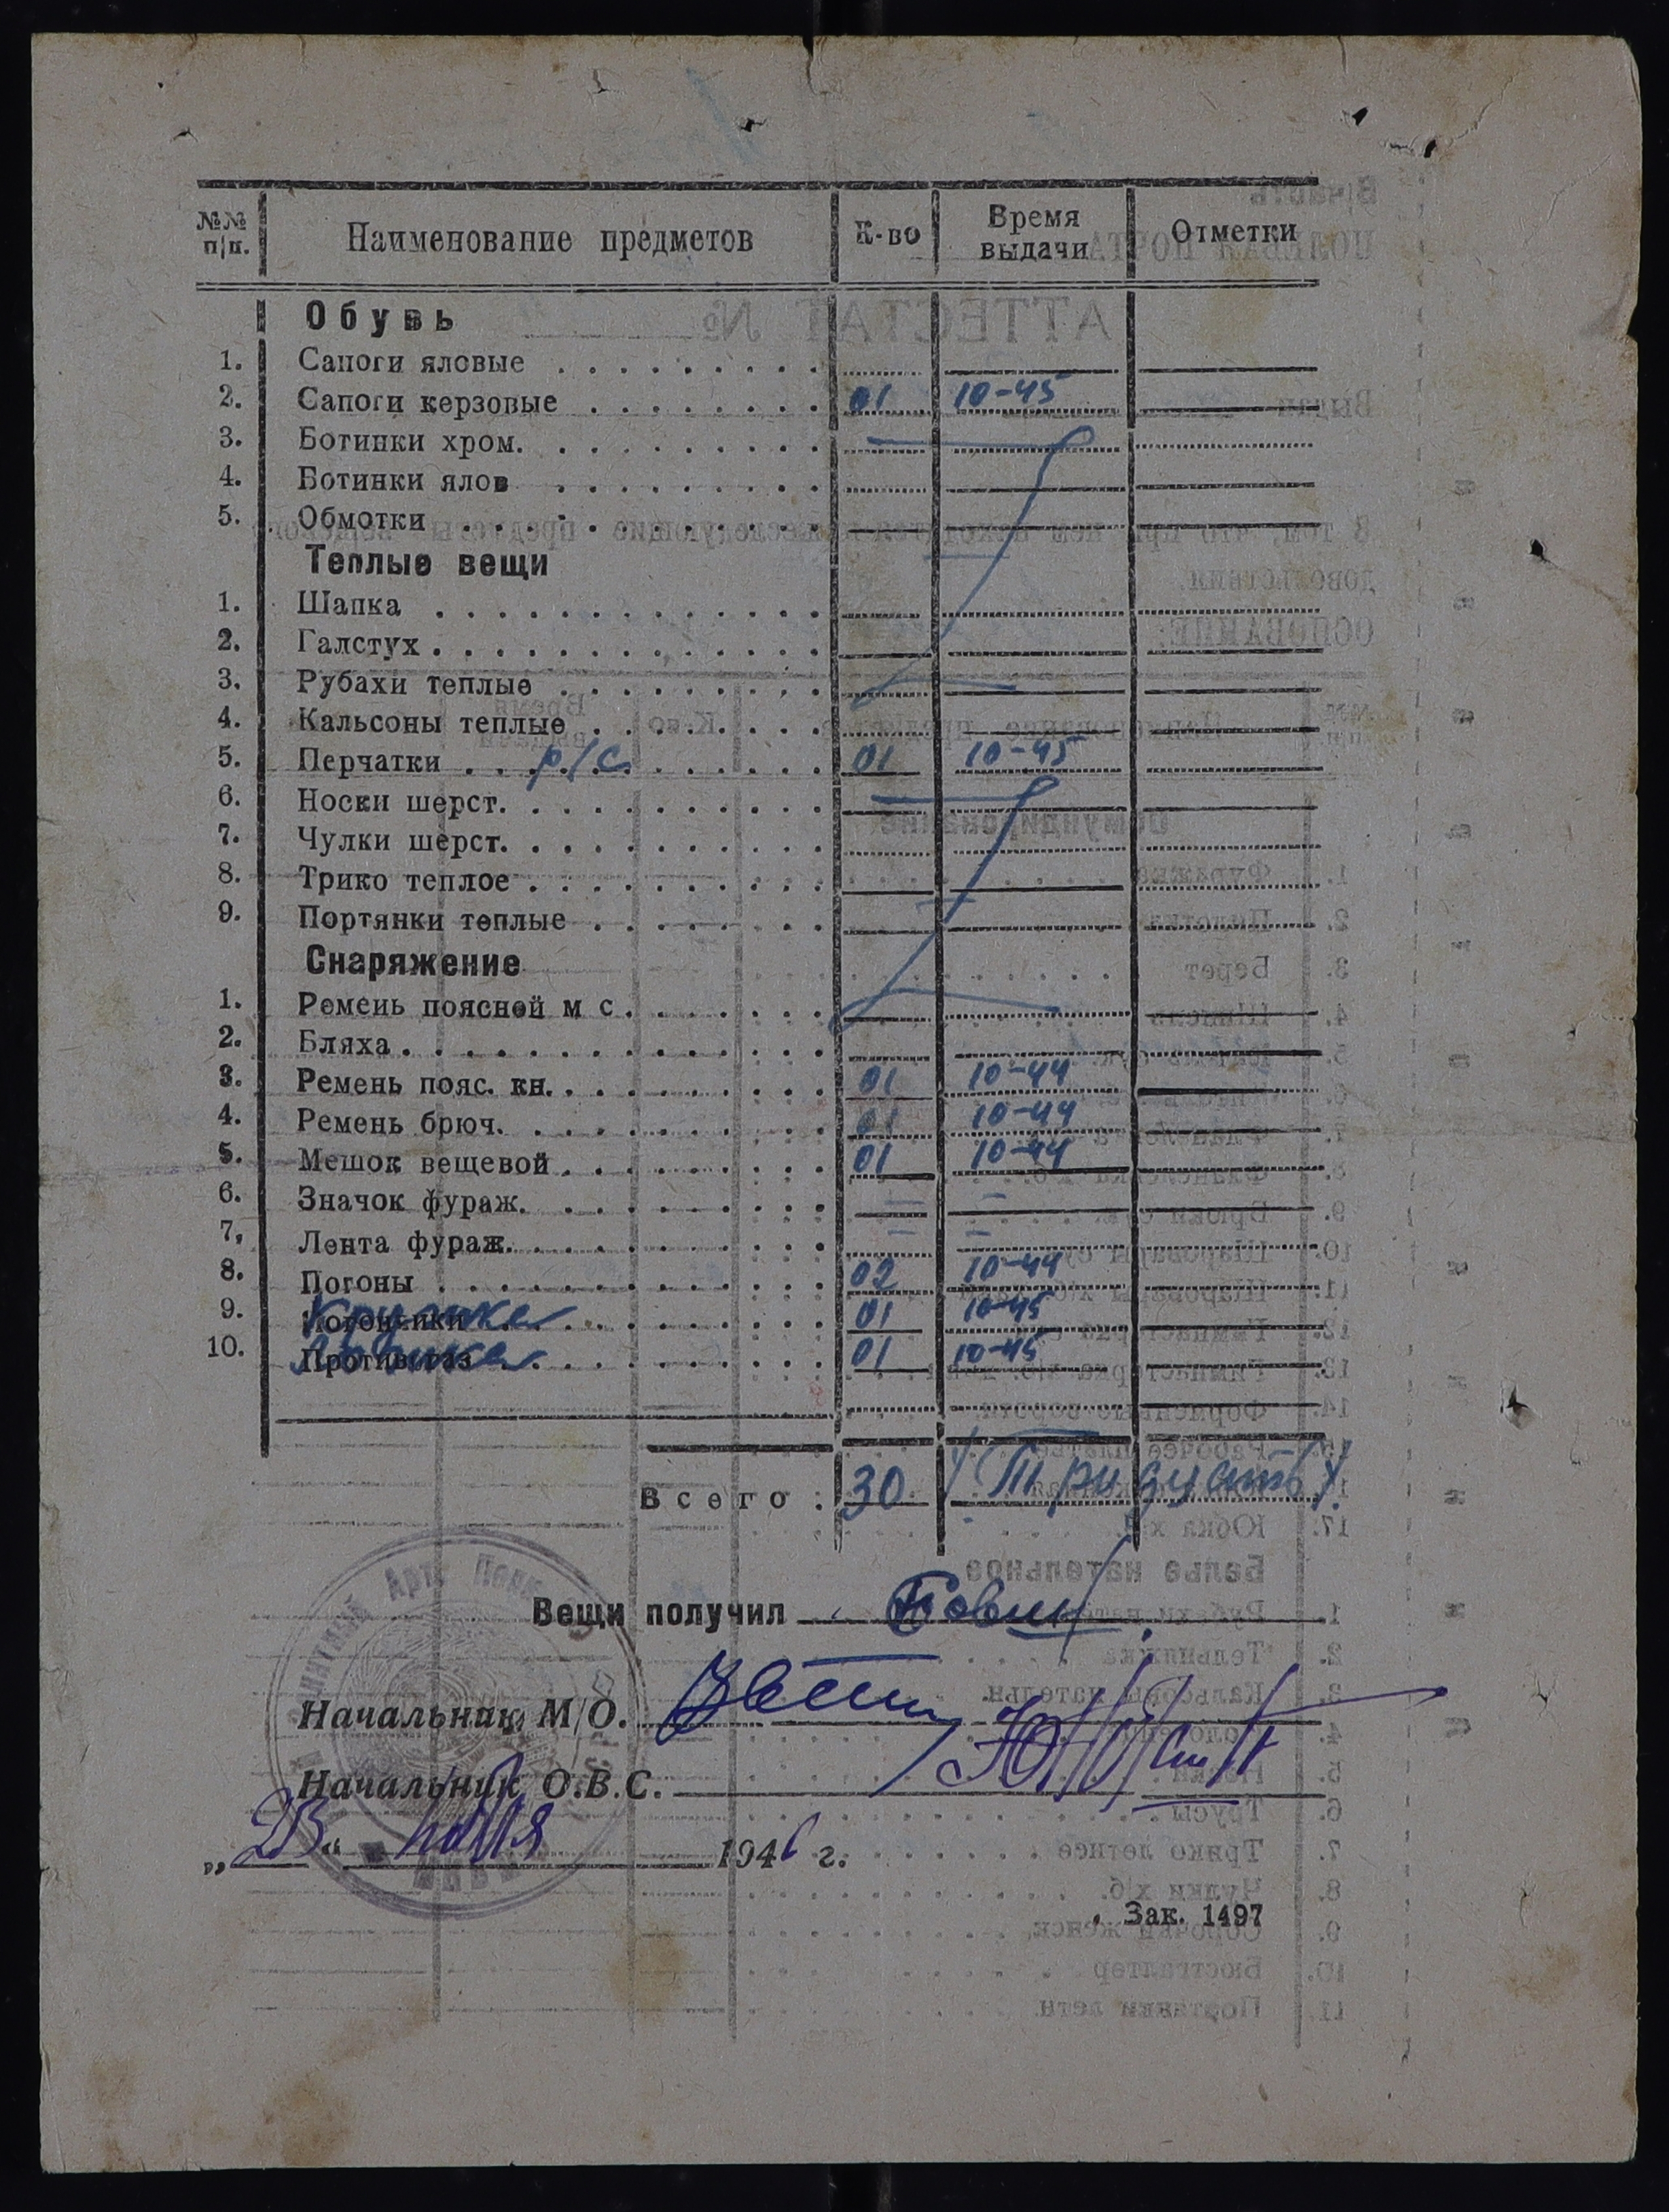 №№ п/п. Наименование предметов К-во Время выдачи Отметки
Обувь
1. Сапоги яловые
2. Сапоги керзовые 01 10-45
3. Ботинки хром.
4. Ботинки ялов
5. Обмотки
Теплые вещи
1. Шапка
2. Галстух
3. Рубахи теплые
4. Кальсоны теплые
5. Перчатки р/с 01 10-45
6. Носки шерст.
7. Чулки шерст.
8. Трико теплое
9. Портянки теплые
Снаряжение
1. Ремень поясной м с.
2. Бляха
3. Ремень пояс. кн. 01 10-44
4. Ремень брюч. 01 10-44
5. Мешок вещевой 01 10-44
6. Значок фураж. = =
7. Лента фураж. = =
8. Погоны 02 10-44
9. Кружка 01 10-45
10. Противогаз 01 10-45
Всего: 30 (Тридцать).
Вещи получил
Начальник М/О.
Начальник О.В.С.
„23“ ноября 1946 г.
Зак. 1497